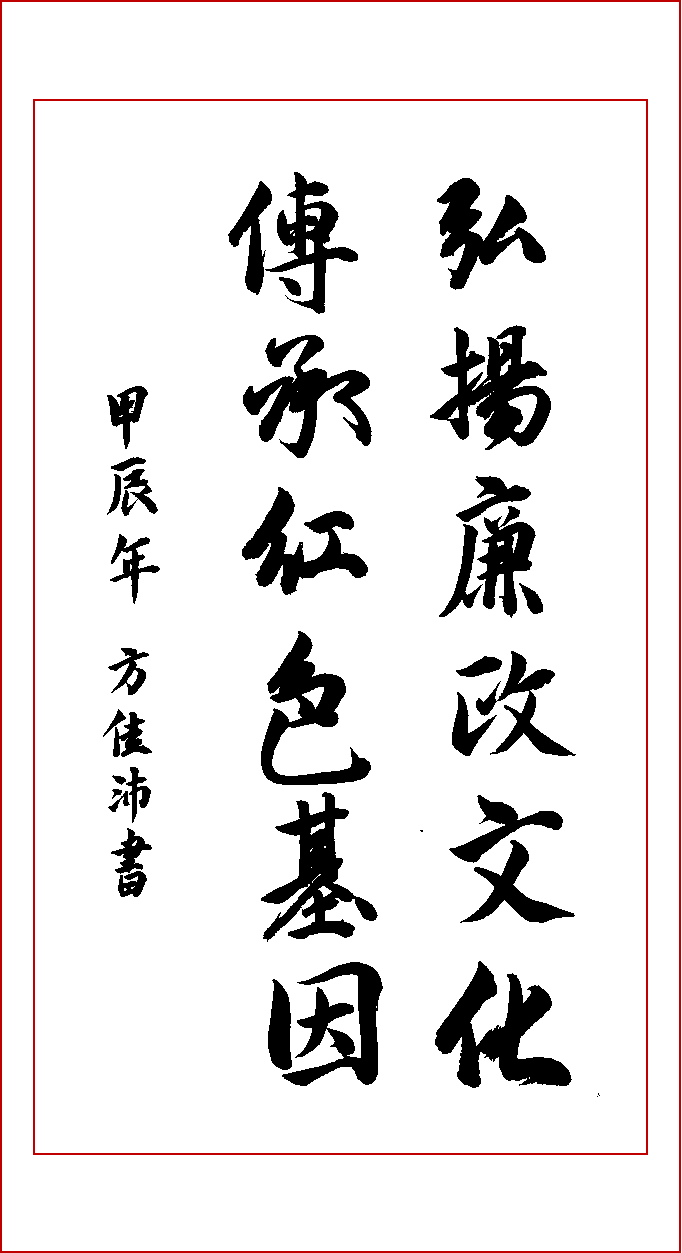 弘揚廉政文化
傳承紅色基因
甲辰年 方佳沛書